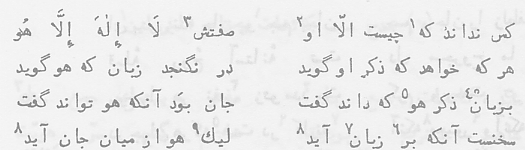 کس نداند که۱ چیست الّا او۲ صفتش۳ لَا إِلٰهَ إِلَّا هُو
هر که خواهد که ذکر او گوید در نگنجد زبان که هو گوید
بزبان۴ ذکر هو۵ که داند گفت جان بود آنکه هو تواند گفت
سخنست آنکه بر۶ زبان۷ آید۸ لیك۹ هو از میان جان آید۸